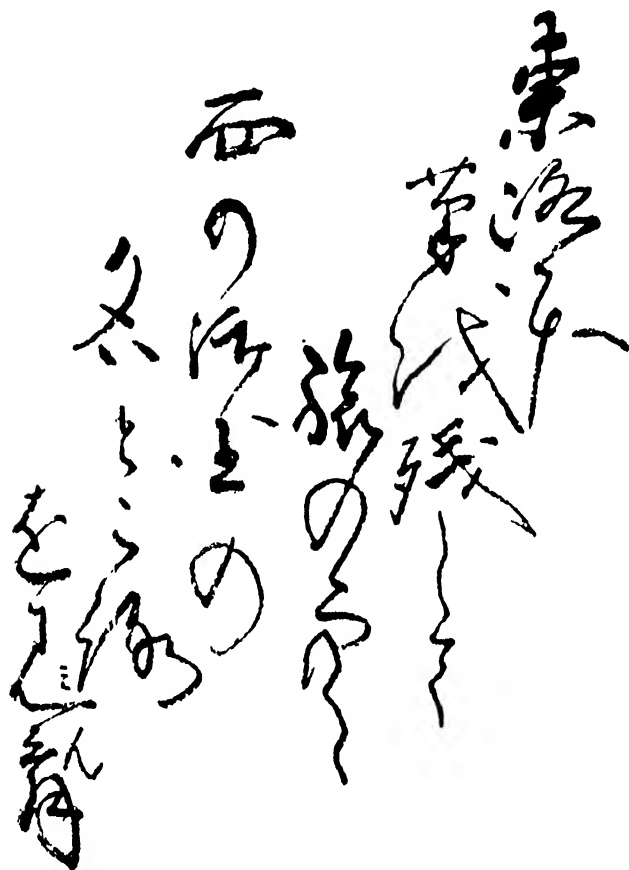 東路へ
筆を残して
旅の空
西の御国の
名ところ
を見